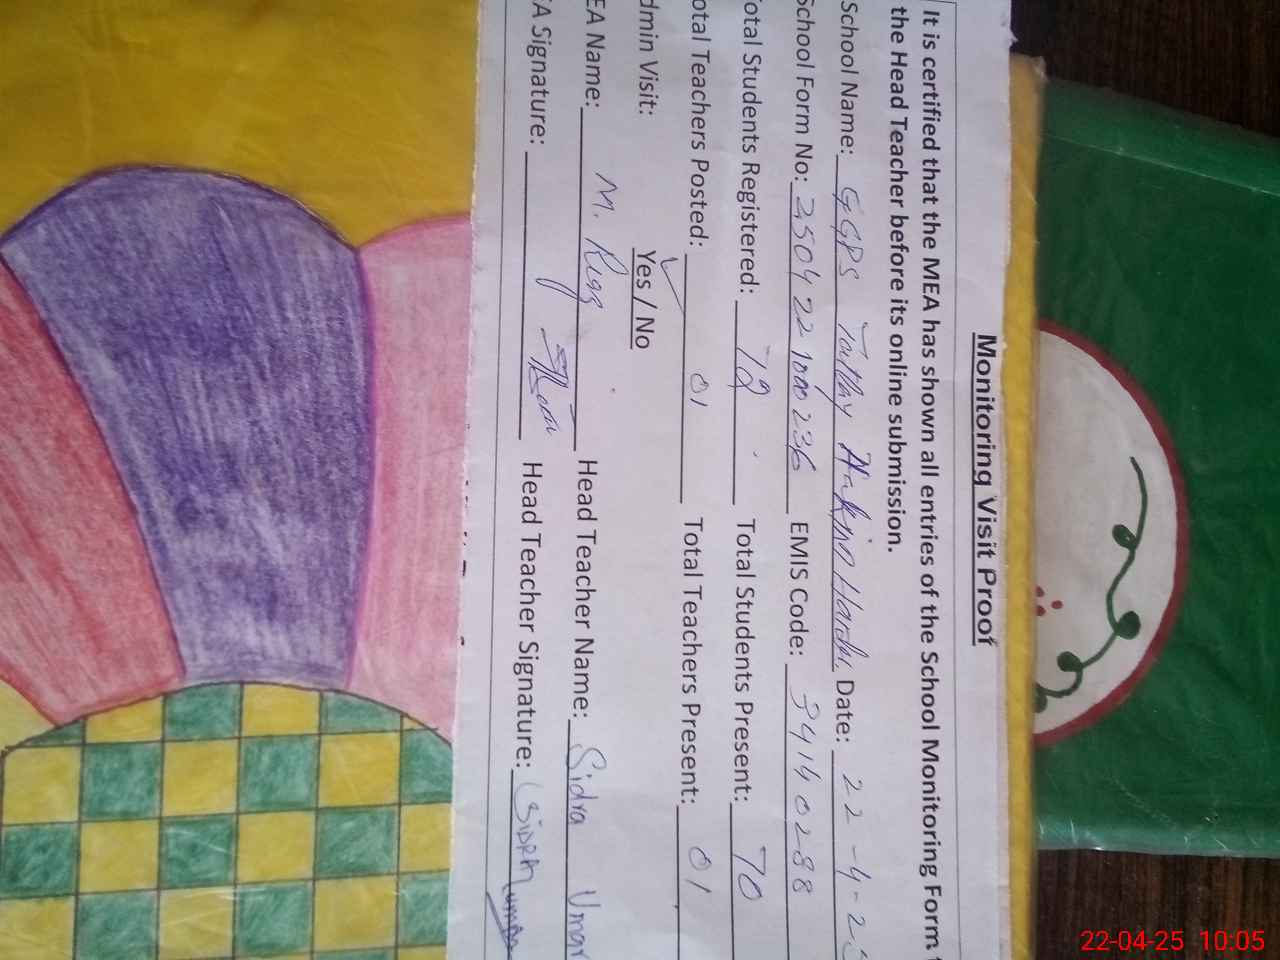 Monitoring Visit Proof
It is certified that the MEA has shown all entries of the School Monitoring Form
the Head Teacher before its online submission.
School Name: GGPS Date: 22-4-25
School Form No: EMIS Code: 34140288
Total Students Registered: 72 Total Students Present: 70
otal Teachers Posted: 01 Total Teachers Present: 01
dmin Visit: Yes / No
EA Name: M. Riaz Head Teacher Name: Sidra Umar
A Signature: Head Teacher Signature: Sidra Umar
22-04-25 10:05